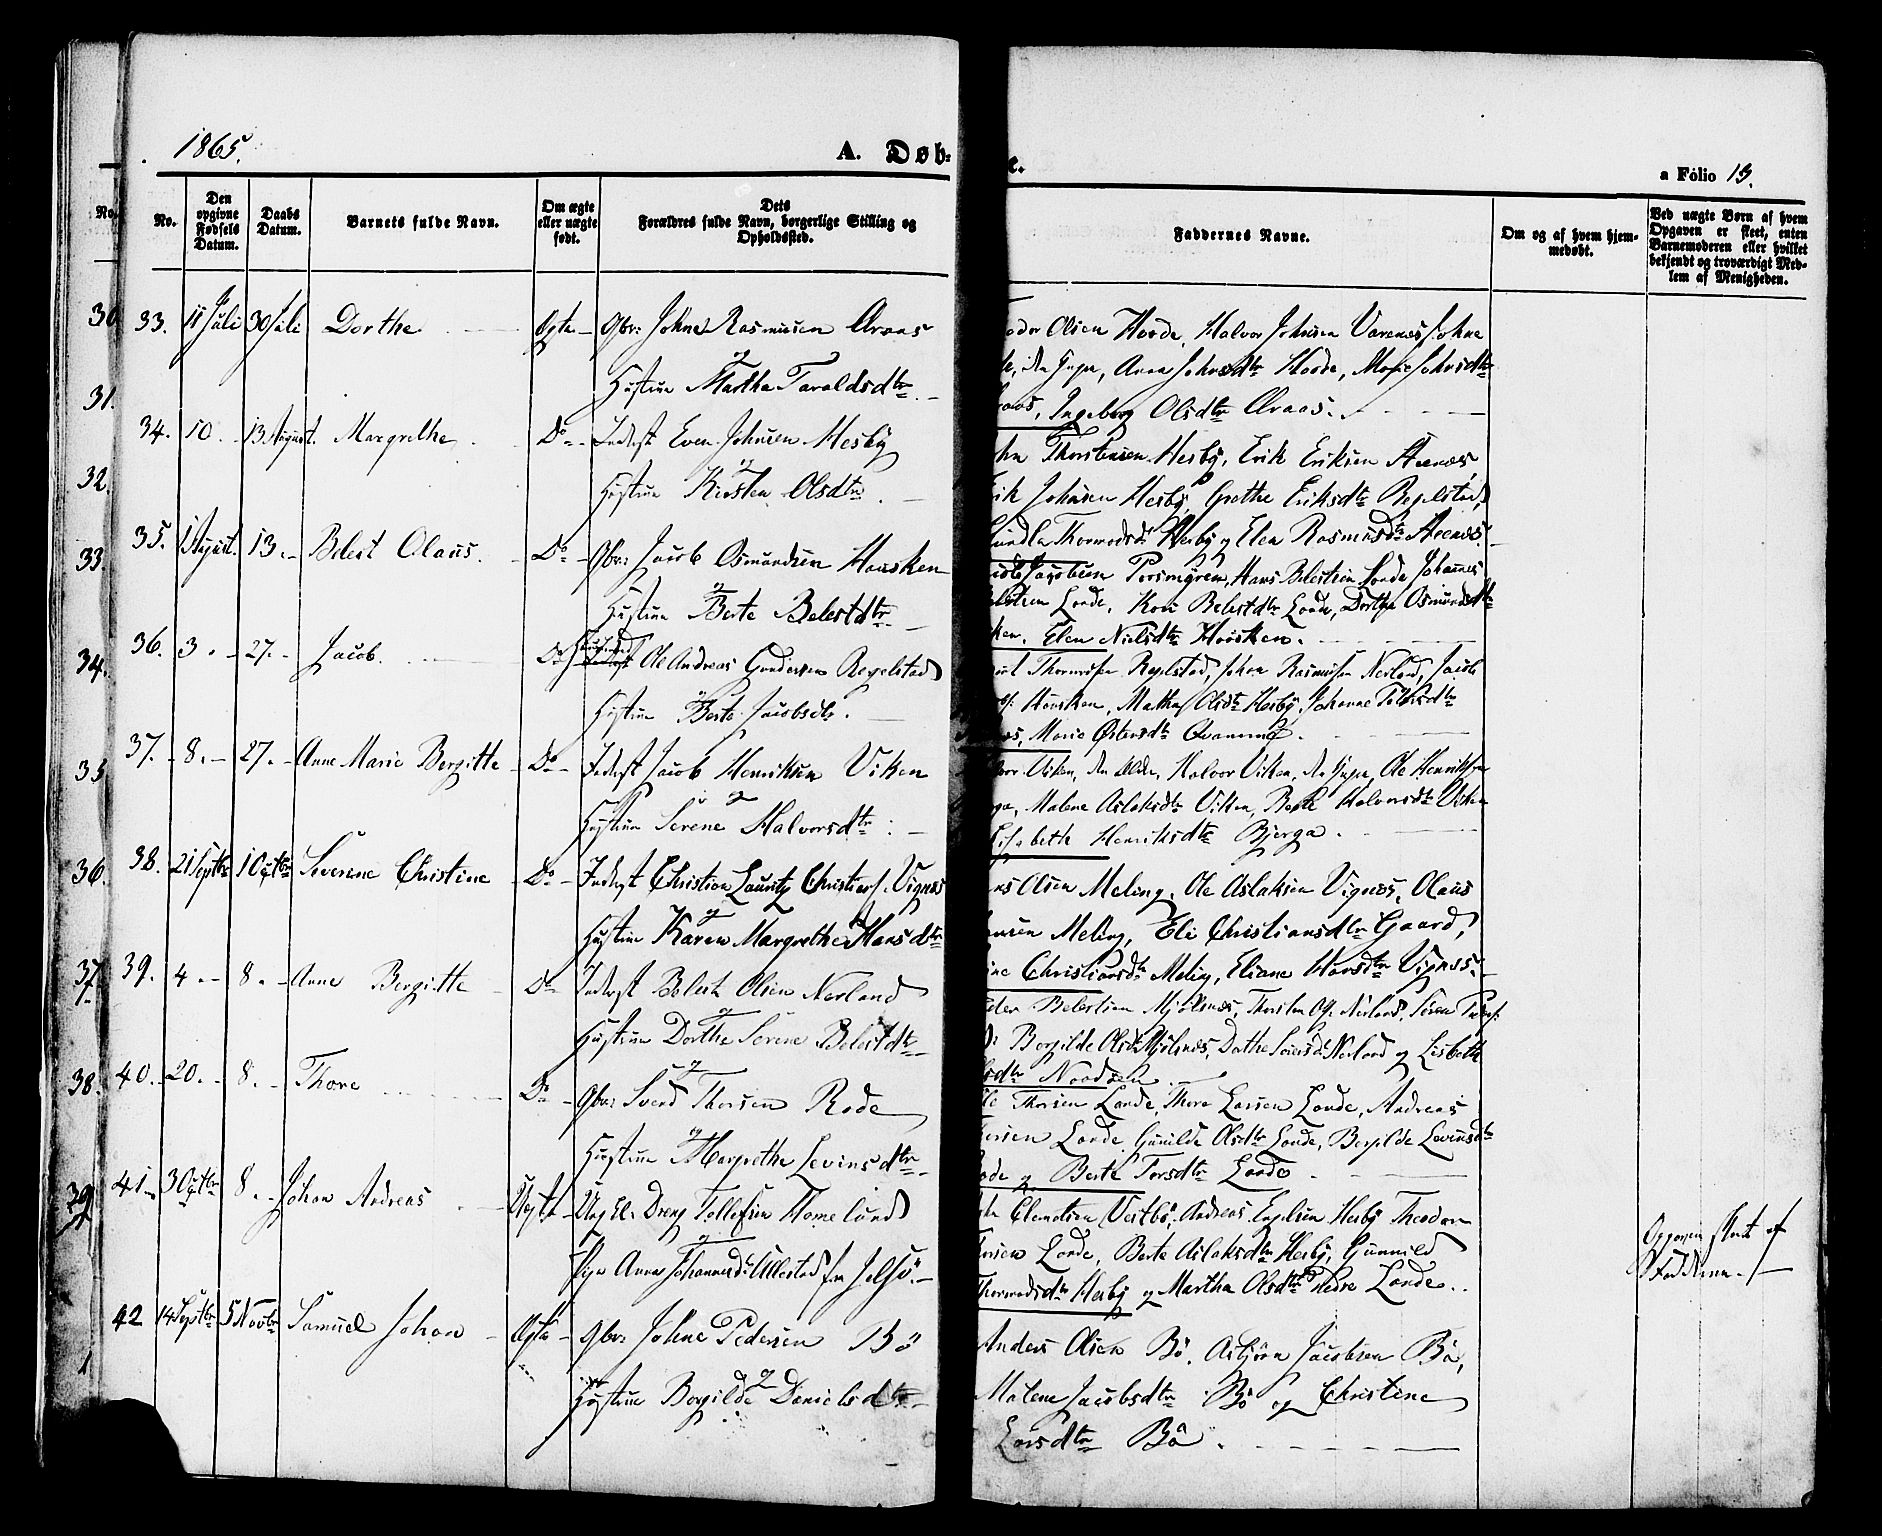 1865.
A. Døb-
e.
a Folio 13.
No.
No.
Den opgivne Fødsels Datum.
Daabs Datum.
Barnets fulde Navn.
Om ægte eller uægte født.
Dets Forældres fulde Navn, borgerlige Stilling og Opholdssted.
Faddernes Navne.
Om og af hvem hjemmedøbt.
Ved uægte Børn af hvem Opgaven er skeet, enten Barnemoderen eller hvilket bekjendt og troværdigt Medlem af Menigheden.
30
31.
32.
33
34.
35
36.
37.
38.
39
33. 11 Juli 30 Juli Dorthe Ægte Gbr: Johne Rasmusen Araas
og
Hustrue Martha Taraldsdtr
Olsen Hovde, Halvor Johnsen Varenes, Johne
den Yngre, Anna Johnsdtr Hovde, Marie Johnsdtr
Ingeborg Olsdtr Araas.
34. 10 13 August. Margrethe Do Inderst Even Johnsen Hesby
og
Hustrue Kirsten Olsdtr
Thorstensen Hesby, Erik Eriksen Steenæs
Johnsen Hesby, Grethe Eriksdtr Regelstad,
Thormodsd. Hesby og Elen Rasmusdtr Steenæs.
35. 1 August. 13. Belest Olaus. Do Gbr: Jacob Osmundsen Hausken
og
Hustrue Berte Belestdtr
Jacobsen Hans Belestsen Lande Johannes
Lande, Kari Belestdtr Lande, Dorthe Osmundsdtr
Elen Nielsdtr Hausken.
36. 3. 27. Jacob. Do Ole Andreas Gundersen Regelstad
og
Hustrue Berte Jacobsdtr.
Regelstad, Johan Rasmusen Nerland, Jacob
Hausken, Martha Olsdtr Hesby, Johanne
Marie Østensdtr
37. 8. 27. Anne Marie Bergitte Do Inderst Jacob Henriksen Viken
og
Hustrue Serene Halvorsdtr
Viken, den Ældre, Halvor Viken, den Yngre, Ole Henriksen
Malene Aslaksdtr Viken, Berte Halvorsdtr Viken
Henriksdtr Bjerga.
38. 21 Septbr 1 Octbr Severene Christine Do Inderst Christian Lauritz Christians. Vignæs
og
Hustrue Karen Margrethe Hansdtr
Olsen Meling, Ole Aslaksen Vignæs, Olaus
Meling, Eli Christiansdtr Gaard,
Christiansdtr Meling, Eliane Hansdtr Vignæs.
39. 4. 8. Anne Bergitte Do Inderst Belest Olsen Nerland
og
Hustrue Dorthe Serene Belestdtr
Belestsen Mjølsnæs, Thorsten Ols. Nerland, Sören
Borgilde Olsdtr Mjølsnæs, Nerland og Lisbeth
40. 20. 8. Thore Do Gbr: Svend Thorsen Rode
og
Hustrue Margrethe Levinsdtr
Thorsen Lande, Thore Larsen Lande, Andreas
Lande, Gunilde Olsdtr Lande, Borgilde Levinsdtr
og Berte Torsdtr Lande
41. 3 Octbr 8. Johan Andreas Uægte Ung El. Dreng Tollefsen Homelund
og
Pige Anna Johannesd. Ullestad fra Jelsø.
Clemetsen Vestbø, Andreas Engelsen Hesby Theodor
Lande, Berte Aslaksdtr Hesby, Gunnild
Thormodsdtr Hesby og Martha Olsdtr Lande.
Opgaven skeet af
Fadderne.
42 14 Septbr 5 Novbr Samuel Johan Ægte Gbr: Johne Pedersen Bö
og
Hustrue Borgilde Danielsdtr
Anders Olsen Bö, Asbjörn Jacobsen Bö,
Malene Jacobsdtr Bö og Christine
Larsdtr Bö.